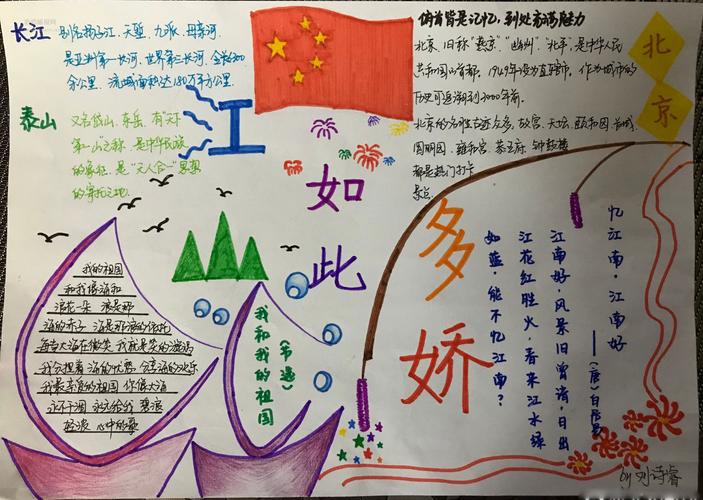 长江 别名扬子江、天堑、九派、母亲河,
是亚洲第一长河、世界第三长河,全长6300
余公里,流域面积达180万平方公里.
泰山 又名岱山、东岳,有"天下
第一山"之称,是中华民族
的象征,是"天人合一"思想
的寄托之地.
江
如
此
多
娇
俯首皆是记忆,到处充满魅力
北京
北京,旧称"燕京""幽州""北平",是中华人民
共和国的首都,1949年设为直辖市。作为城市的
历史可追溯到3000年前。
北京的名胜古迹众多,故宫、天坛、颐和园、长城、
圆明园、雍和宫、恭王府、钟鼓楼
都是热门打卡
景点.
忆江南·江南好
——(唐)白居易
江南好,风景旧曾谙,日出
江花红胜火,春来江水绿
如蓝,能不忆江南?
我的祖国
和我像海和
浪花一朵 浪是那
海的赤子 海是那浪的依托
每当大海在微笑 我就是笑的漩涡
我分担着海的忧愁 分享海的欢乐
我最亲爱的祖国 你像大海
永不干涸 永远给我 碧浪
轻波 心中的歌
我和我的祖国
(节选)
by 刘诗睿